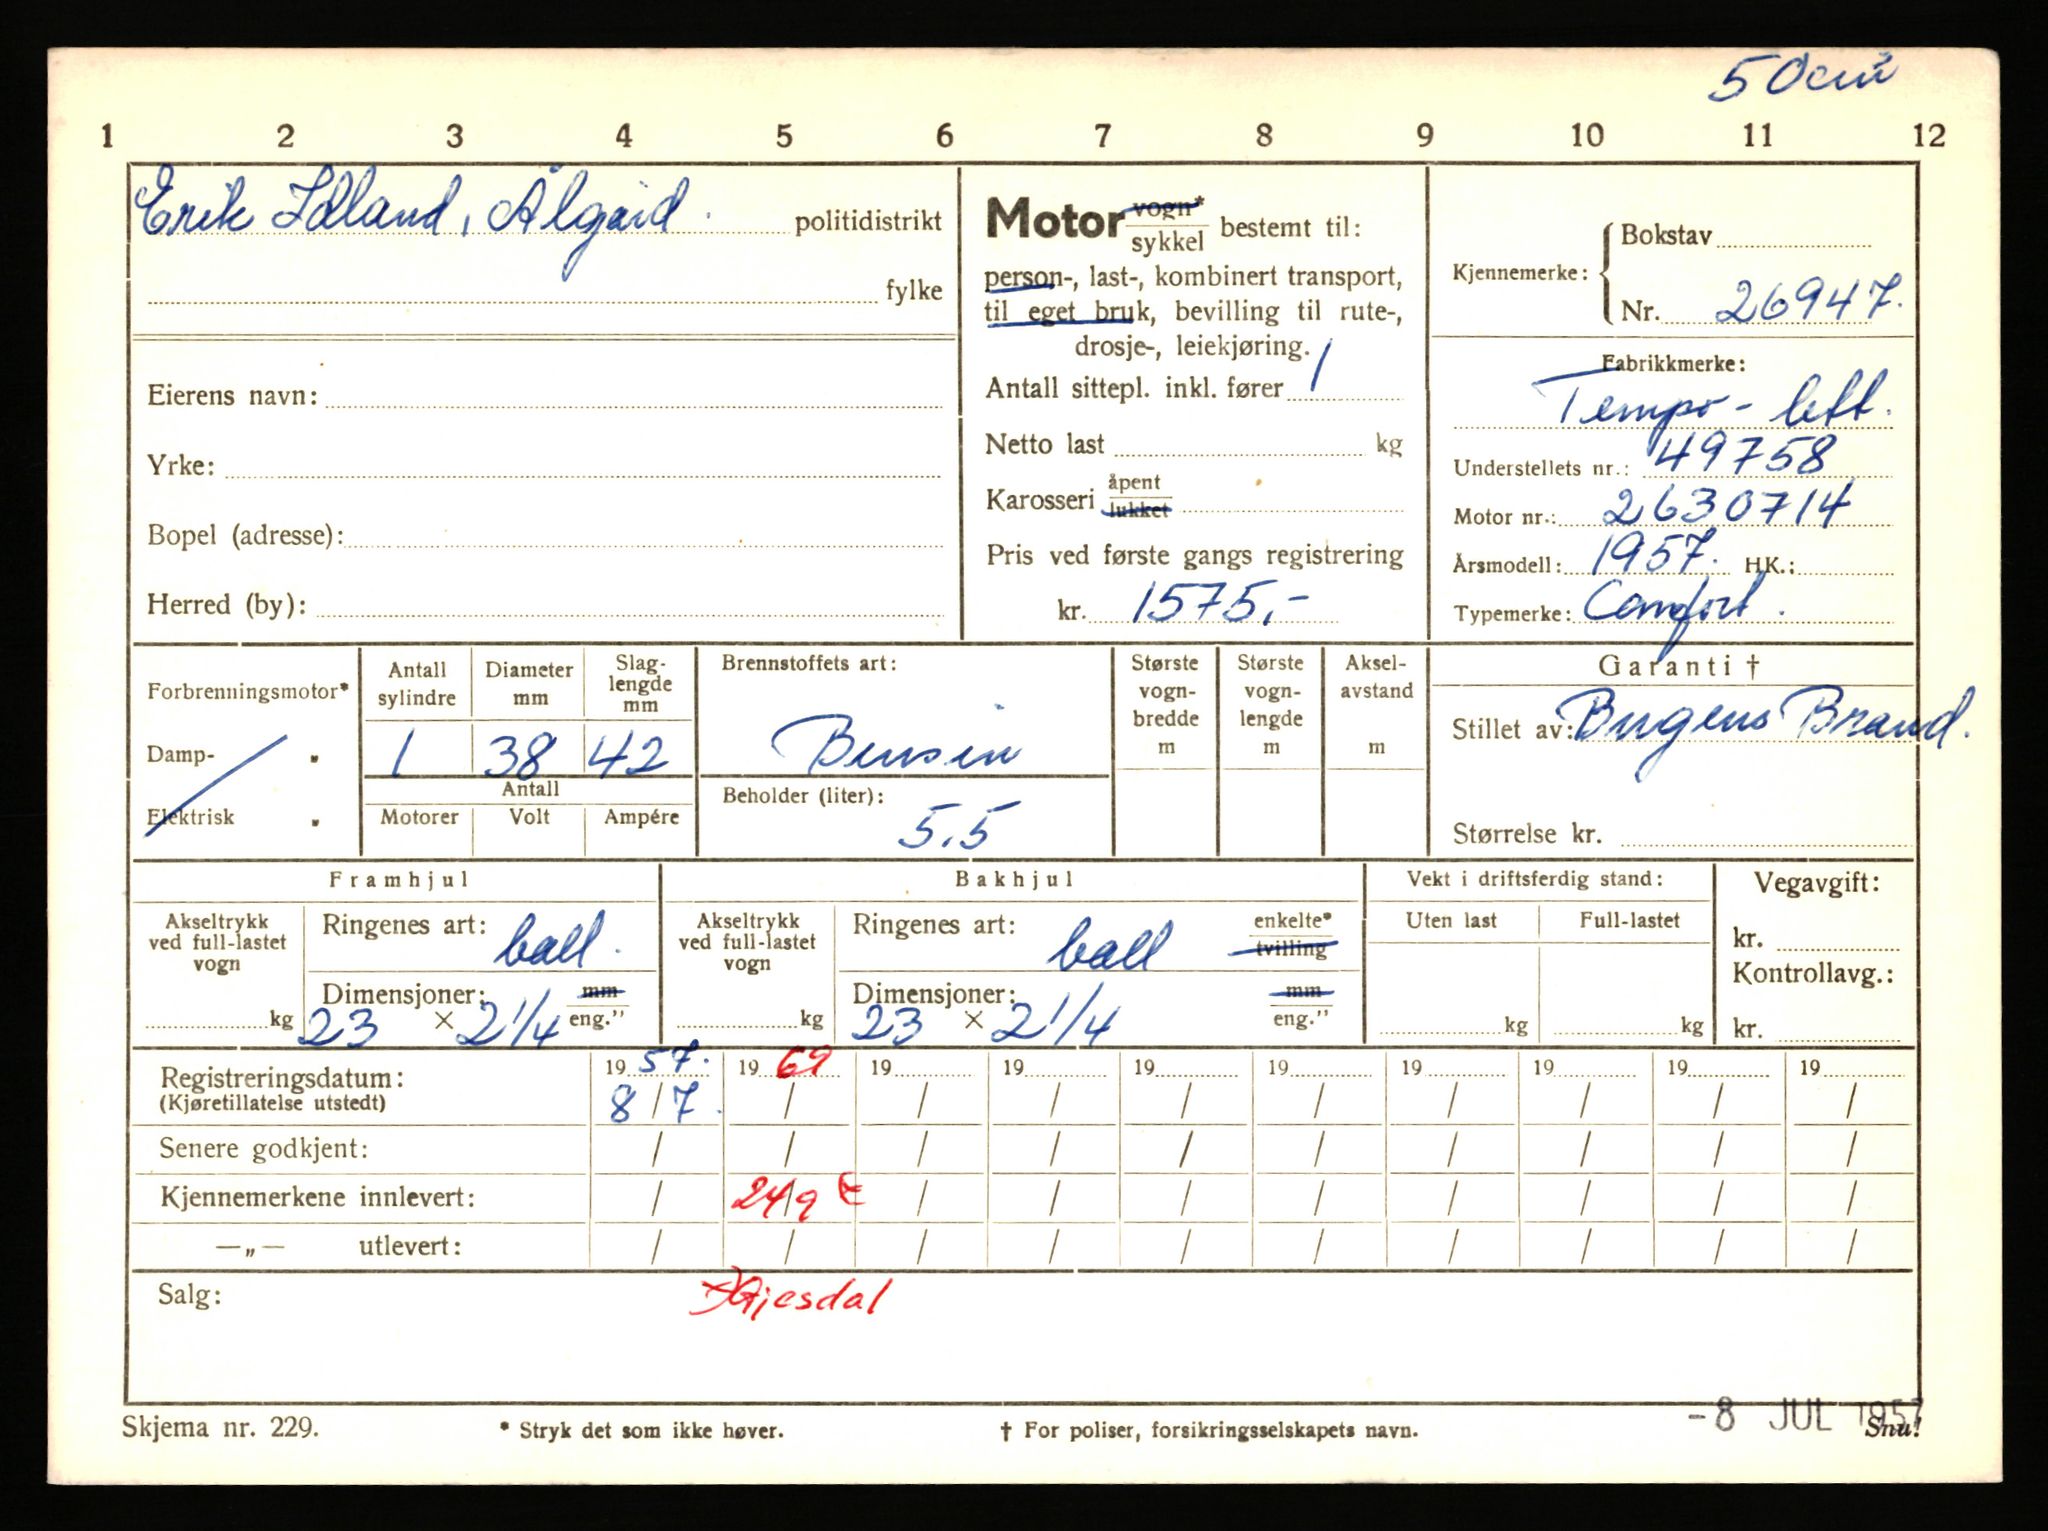 50 cm³
1 2 3 4 5 6 7 8 9 10 11 12
Erik Idland, Ålgård. politidistrikt
fylke
Eierens navn:
Yrke:
Bopel (adresse):
Herred (by):
Motor vogn* / sykkel bestemt til:
person-, last-, kombinert transport,
til eget bruk, bevilling til rute-,
drosje-, leiekjøring.
Antall sittepl. inkl. fører 1
Netto last kg
Karosseri åpent / lukket
Pris ved første gangs registrering
kr. 1575,-
Kjennemerke: Bokstav
Nr. 26947.
Fabrikkmerke:
Tempo - lett.
Understellets nr.: 49758
Motor nr.: 2630714
Årsmodell: 1957. HK.:
Typemerke: Comfort.
Forbrenningsmotor*
Damp- "
Elektrisk "
Antall sylindre
Diameter mm
Slag-
lengde
mm
1 38 42
Antall
Motorer Volt Ampére
Brennstoffets art:
Bensin
Beholder (liter):
5.5
Største
vogn-
bredde
m
Største
vogn-
lengde
m
Aksel-
avstand
m
Garanti †
Stillet av: Brand.
Størrelse kr.
Framhjul
Akseltrykk
ved full-lastet
vogn
kg
Ringenes art: ball.
Dimensjoner: mm
23 × 2 1/4 eng."
Bakhjul
Akseltrykk
ved full-lastet
vogn
kg
Ringenes art: ball enkelte* / tvilling
Dimensjoner: mm
23 × 2 1/4 eng."
Vekt i driftsferdig stand:
Uten last Full-lastet
kg kg
Vegavgift:
kr.
Kontrollavg.:
kr.
Registreringsdatum: 19 57. 19 69 19 19 19 19 19 19 19 19
(Kjøretillatelse utstedt) 8/7. / / / / / / / / /
Senere godkjent: / / / / / / / / / /
Kjennemerkene innlevert: / 24/9 / / / / / / / /
—„— utlevert: / / / / / / / / / /
Salg: Gjesdal
-8 JUL 1957
Skjema nr. 229. * Stryk det som ikke høver. † For poliser, forsikringsselskapets navn. Snu!